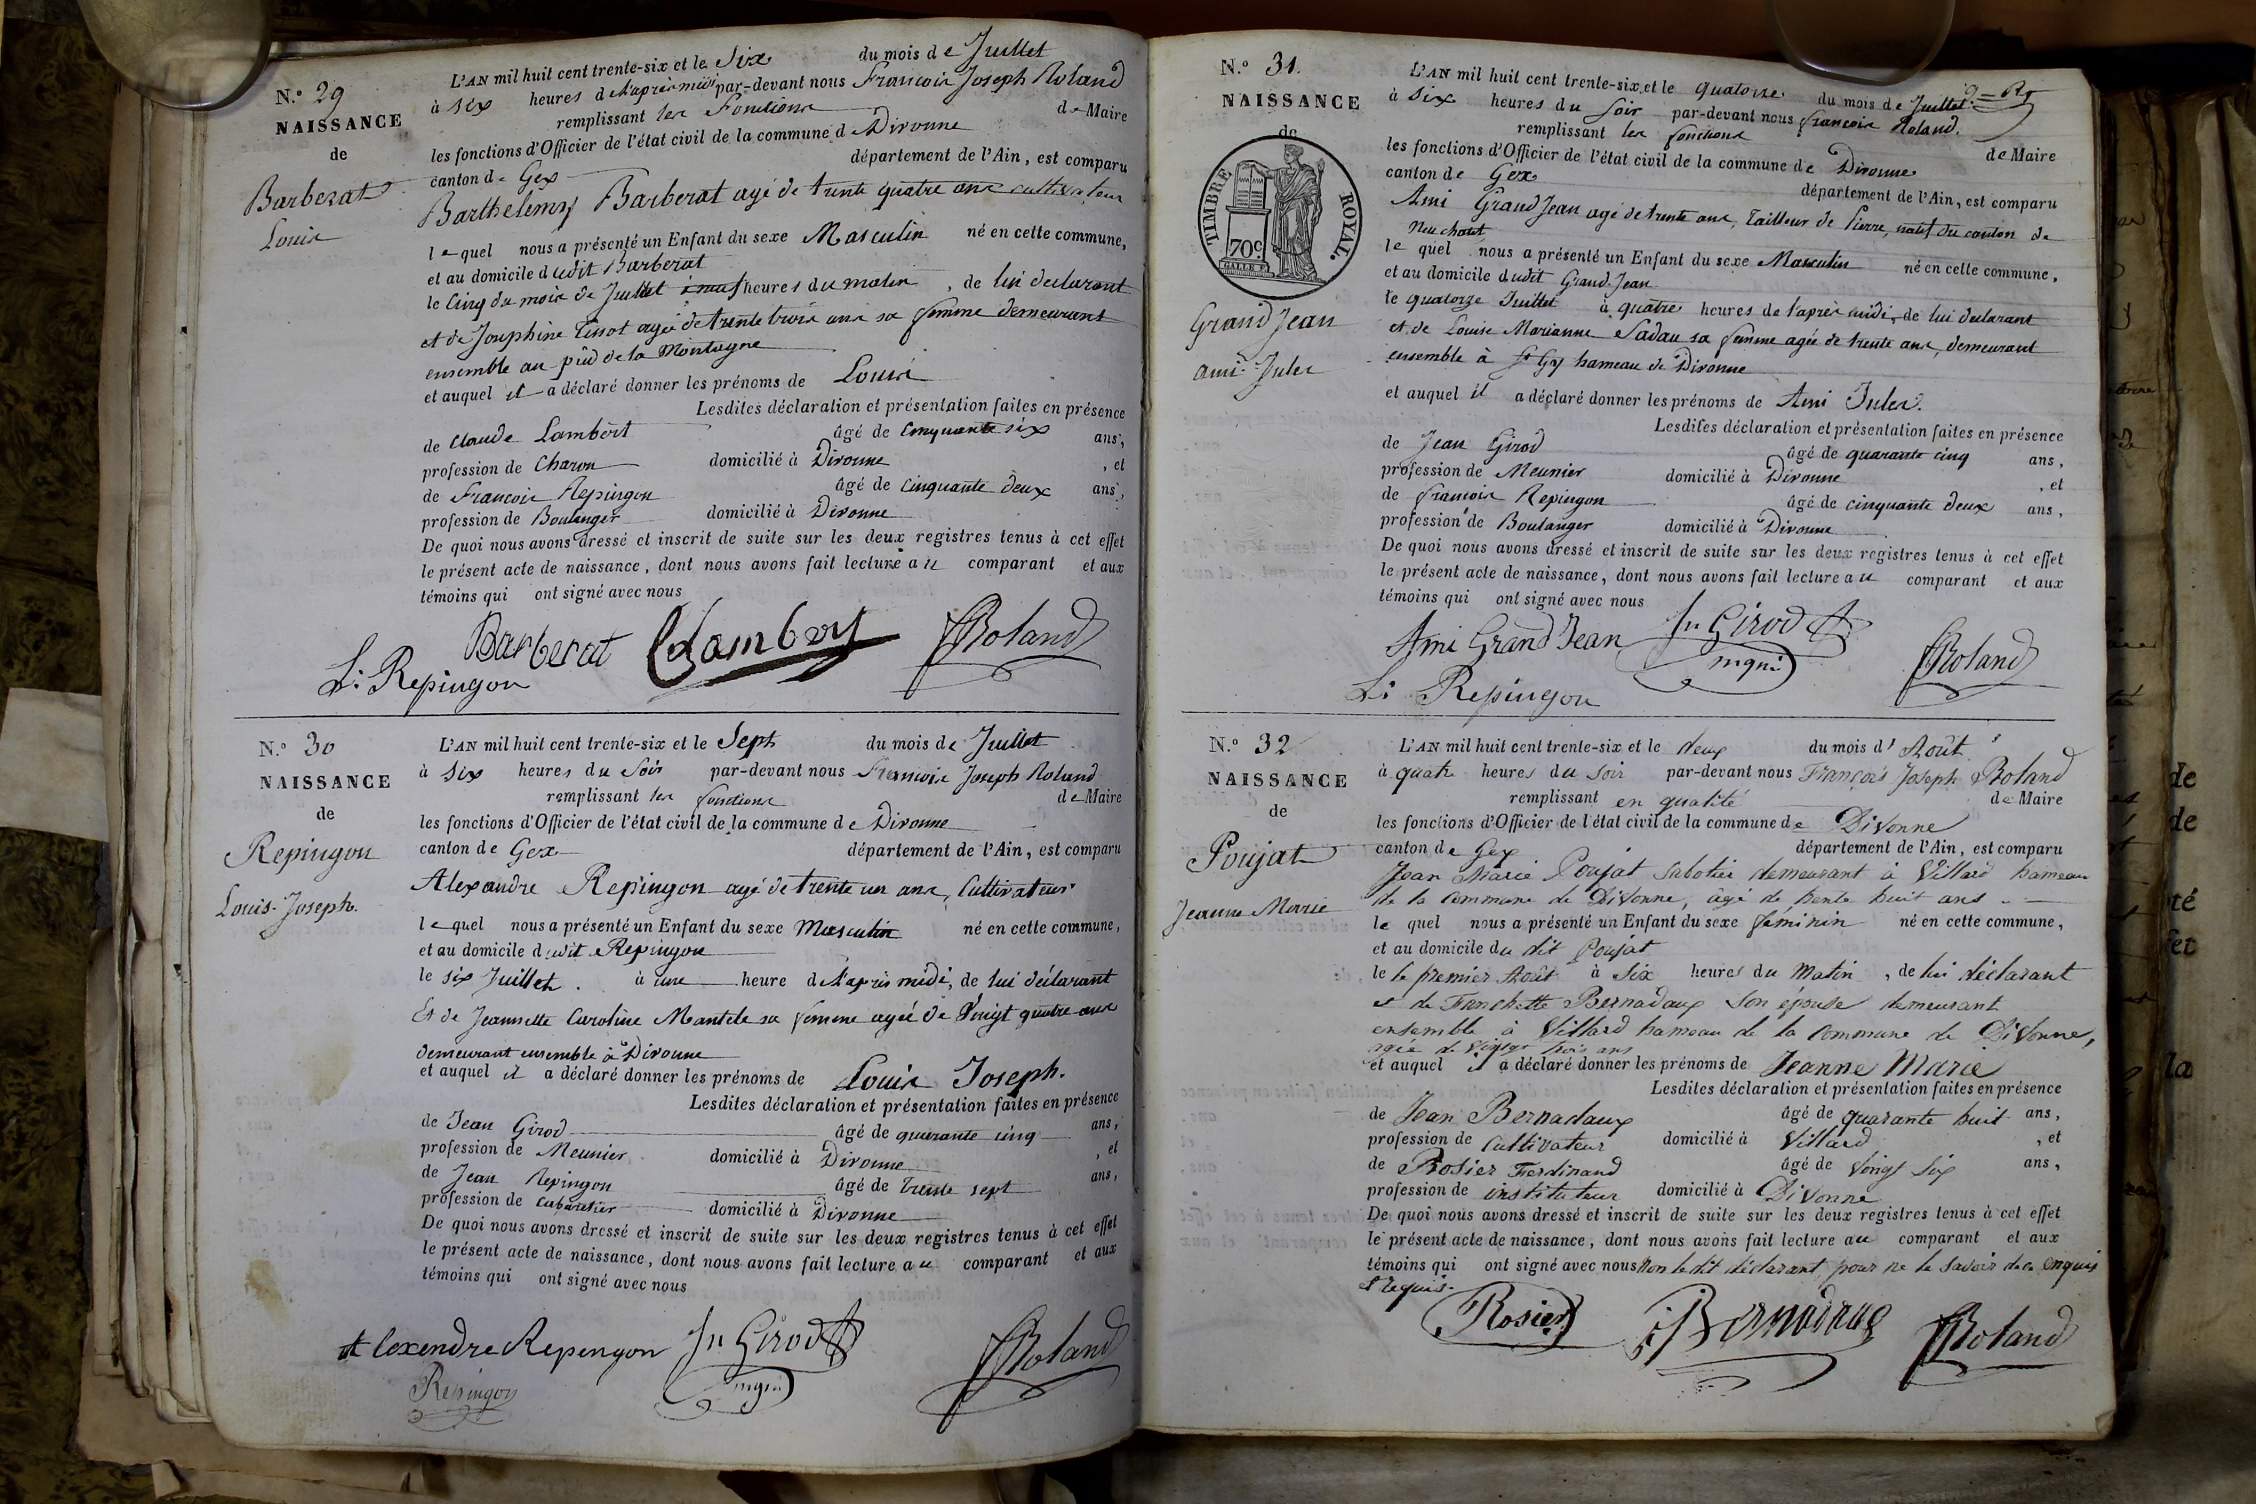 N.° 29
NAISSANCE
de
Barberat
Louis
L'AN mil huit cent trente-six et le Six du mois de Juillet
à six heures de l'après midi par-devant nous François Joseph Roland
remplissant les Fonctions de Maire
les fonctions d'Officier de l'état civil de la commune de Divonne
canton de Gex département de l'Ain, est comparu
Barthelemy Barberat agé de trente quatre ans cultivateur
lequel nous a présenté un Enfant du sexe Masculin né en cette commune,
et au domicile dudit Barberat
le Cinq du mois de Juillet à neuf heures du matin, de lui declarant
et de Josephine Tissot agée de trente trois ans sa femme demeurant
ensemble au pied de la Montagne
et auquel il a déclaré donner les prénoms de Louis
Lesdites déclaration et présentation faites en présence
de Claude Lambert âgé de Cinquante six ans,
profession de Charon domicilié à Divonne, et
de François Repingon âgé de Cinquante deux ans,
profession de Boulanger domicilié à Divonne
De quoi nous avons dressé et inscrit de suite sur les deux registres tenus à cet effet
le présent acte de naissance, dont nous avons fait lecture au comparant et aux
témoins qui ont signé avec nous
Barberat CLambert Roland
Repingon
N.° 30
NAISSANCE
de
Repingon
Louis-Joseph.
L'AN mil huit cent trente-six et le Sept du mois de Juillet
à six heures du Soir par-devant nous François Joseph Roland
remplissant les fonctions de Maire
les fonctions d'Officier de l'état civil de la commune de Divonne
canton de Gex département de l'Ain, est comparu
Alexandre Repingon agé de trente un ans, Cultivateur
lequel nous a présenté un Enfant du sexe Masculin né en cette commune,
et au domicile dudit Repingon
le six Juillet à une heure de l'après midi, de lui déclarant
Et de Jeannette Caroline Mantele sa femme agée de Vingt quatre ans
demeurant ensemble à Divonne
et auquel il a déclaré donner les prénoms de Louis Joseph.
Lesdites déclaration et présentation faites en présence
de Jean Girod âgé de quarante cinq ans,
profession de Meunier domicilié à Divonne, et
de Jean Repingon âgé de trente sept ans,
profession de Cabaretier domicilié à Divonne
De quoi nous avons dressé et inscrit de suite sur les deux registres tenus à cet effet
le présent acte de naissance, dont nous avons fait lecture au comparant et aux
témoins qui ont signé avec nous
Alexendre Repengon Jn Girod Roland
Repingon
N.° 31.
NAISSANCE
de
TIMBRE ROYAL.
70c
Grand Jean
ami-Jules
L'AN mil huit cent trente-six et le quatorze du mois de Juillet
à six heures du soir par-devant nous françois Roland.
remplissant les fonctions de Maire
les fonctions d'Officier de l'état civil de la commune de Divonne
canton de Gex département de l'Ain, est comparu
Ami Grand Jean agé de trente ans, Tailleur de Pierre, natif du canton de
Neuchatel
lequel nous a présenté un Enfant du sexe Masculin né en cette commune,
et au domicile dudit Grand Jean
le quatorze Juillet à quatre heures de l'après midi, de lui declarant
et de Louise Marianne Sadau sa femme agée de trente ans, demeurant
ensemble à St Gy hameau de Divonne
et auquel il a déclaré donner les prénoms de Ami Jules.
Lesdites déclaration et présentation faites en présence
de Jean Girod âgé de quarante cinq ans,
profession de Meunier domicilié à Divonne, et
de françois Repingon âgé de cinquante deux ans,
profession de Boulanger domicilié à Divonne
De quoi nous avons dressé et inscrit de suite sur les deux registres tenus à cet effet
le présent acte de naissance, dont nous avons fait lecture au comparant et aux
témoins qui ont signé avec nous
Ami Grand Jean Jn Girod Roland
Repingon
N.° 32
NAISSANCE
de
Poujat
Jeanne Marie
L'AN mil huit cent trente-six et le deux du mois d'Août
à quatre heures du soir par-devant nous François Joseph Roland
remplissant en qualité de Maire
les fonctions d'Officier de l'état civil de la commune de Divonne
canton de Gex département de l'Ain, est comparu
Jean Marie Poujat Sabotier demeurant à Villard hameau
de la commune de Divonne, âgé de trente huit ans
lequel nous a présenté un Enfant du sexe féminin né en cette commune,
et au domicile du dit Poujat
le le premier Août à Six heures du Matin, de lui déclarant
et de Fanchette Bernadaux Son épouse demeurant
ensemble à Villard hameau de la commune de Divonne,
agée de Vingt trois ans
et auquel il a déclaré donner les prénoms de Jeanne Marie
Lesdites déclaration et présentation faites en présence
de Jean Bernadaux âgé de quarante huit ans,
profession de Cultivateur domicilié à Villard, et
de Rosier Ferdinand âgé de Vingt Six ans,
profession de instituteur domicilié à Divonne
De quoi nous avons dressé et inscrit de suite sur les deux registres tenus à cet effet
le présent acte de naissance, dont nous avons fait lecture au comparant et aux
témoins qui ont signé avec nous Non le dit déclarant pour ne le savoir de ce enquis
et requis.
Rosier Bernadaux Roland